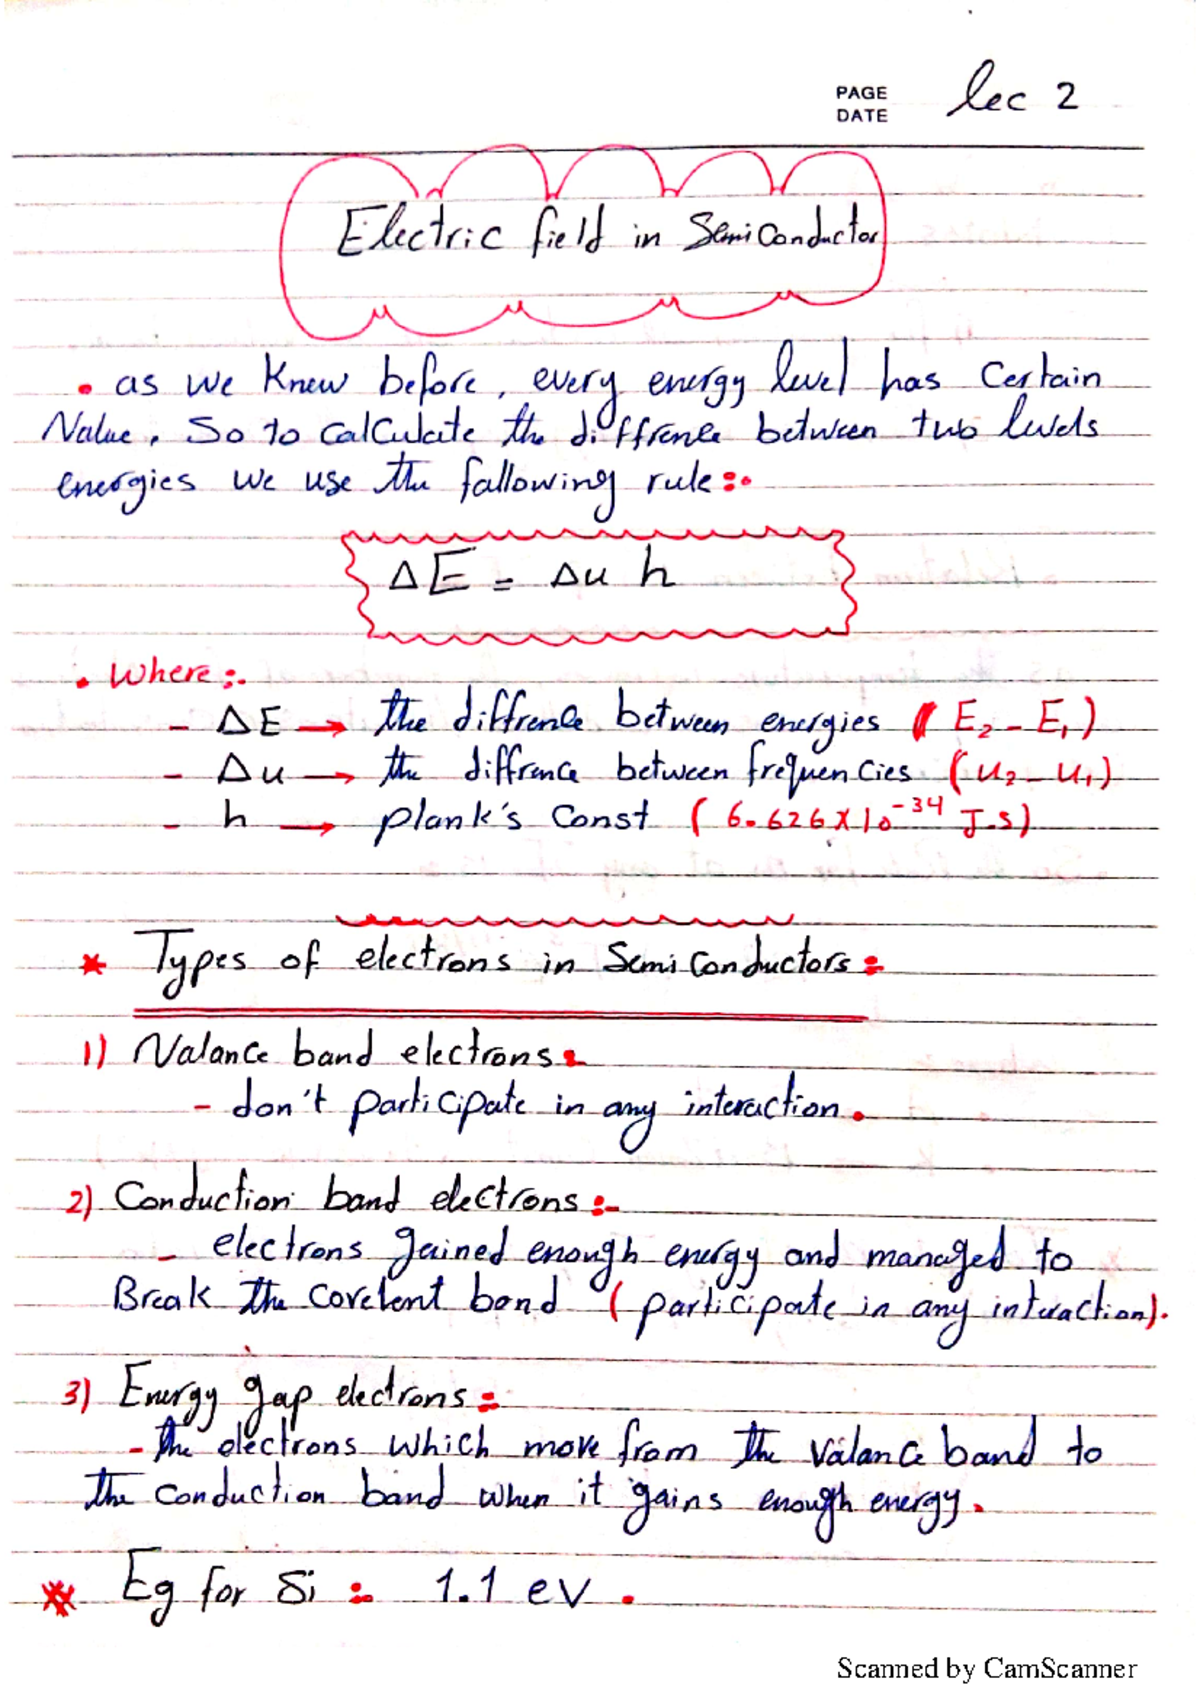 PAGE
DATE
lec 2
Electric field in Semiconductor
• as we knew before, every energy level has certain
Value, So to calculate the diffrence between two levels
energies we use the fallowing rule:-
ΔE = Δu h
• Where:-
- ΔE → the diffrence between energies (E₂ - E₁)
- Δu → the diffrence between frequencies (u₂ - u₁)
- h → plank's Const (6.626 x 10⁻³⁴ J.s)
* Types of electrons in Semiconductors:
1) Valance band electrons:
- don't participate in any interaction.
2) Conduction band electrons:-
- electrons gained enough energy and managed to
Break the covelent bond (participate in any interaction).
3) Energy gap electrons:
- the electrons which move from the valance band to
the conduction band when it gains enough energy.
* Eg for Si :- 1.1 eV.
Scanned by CamScanner